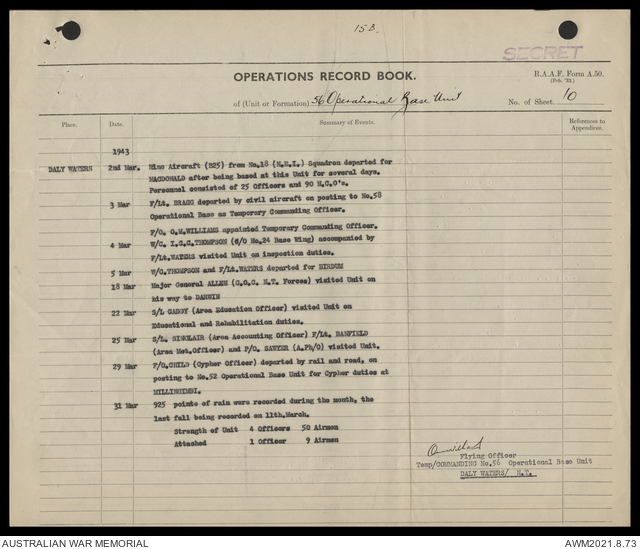 15B.
SECRET
OPERATIONS RECORD BOOK.
R.A.A.F. Form A.50.
(Feb. '33.)
of (Unit or Formation) 56 Operational Base Unit
No. of Sheet 10
Place. Date. Summary of Events. References to Appendices.
1943
DALY WATERS 2nd Mar. Nine Aircraft (B25) from No.18 (N.E.I.) Squadron departed for
MACDONALD after being based at this Unit for several days.
Personnel consisted of 25 Officers and 90 N.C.O's.
3 Mar F/Lt. BRAGG departed by civil aircraft on posting to No.58
Operational Base as Temporary Commanding Officer.
F/O. G.M.WILLIAMS appointed Temporary Commanding Officer.
4 Mar W/C. I.C.C.THOMPSON (C/O No.24 Base Wing) accompanied by
F/Lt.WATERS visited Unit on inspection duties.
5 Mar W/C.THOMPSON and F/Lt.WATERS departed for BIRDUM
18 Mar Major General ALLEN (G.O.C. N.T. Forces) visited Unit on
his way to DARWIN
22 Mar S/L GADDY (Area Education Officer) visited Unit on
Educational and Rehabilitation duties.
25 Mar S/L. SINCLAIR (Area Accounting Officer) F/Lt. BANFIELD
(Area Met.Officer) and F/O. SAWYER (A.Ph/O) visited Unit.
29 Mar F/O.CHILD (Cypher Officer) departed by rail and road, on
posting to No.52 Operational Base Unit for Cypher duties at
MILLINGIMBI.
31 Mar 925 points of rain were recorded during the month, the
last fall being recorded on 11th.March.
Strength of Unit 4 Officers 50 Airmen
Attached 1 Officer 9 Airmen
Flying Officer
Temp/COMMANDING No.56 Operational Base Unit
DALY WATERS/ N.T.
AUSTRALIAN WAR MEMORIAL AWM2021.8.73